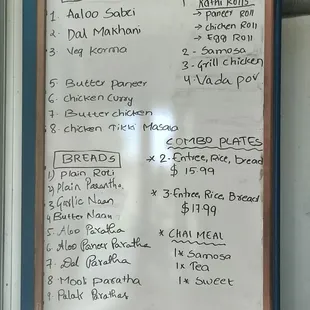 1. Aaloo Sabzi
2. Dal Makhani
3 Veg Korma
5 Butter paneer
6. chicken curry
7. Butter chicken
8- chicken Tikki Masala
BREADS
1) Plain Roti
2) Plain Parantha
3 Garlic Naan
4 Butter Naan
5. Aloo Paratha
6. Aloo Paneer Paratha
7- Dal Paratha
8 Mooli paratha
9 Palak Paratha
1 Kathi Rolls
→ paneer Roll
→ chicken Roll
→ Egg Roll
2 - Samosa
3 - Grill chicken
4 - Vada pav
COMBO PLATES
* 2-Entree, Rice, bread
$ 15.99
* 3-Entree, Rice, Bread
$ 17.99
* CHAI MEAL
1* Samosa
1* Tea
1* Sweet